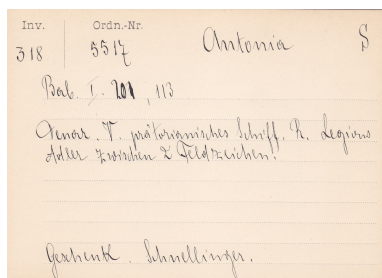 Inv. Ordn.-Nr. Antonia S
318 5517
Bab. I. 201, 113
Denar. V. prätorianisches Schiff. R. Legions
Adler zwischen 2 Feldzeichen.
Geschenk. Schnellinger.